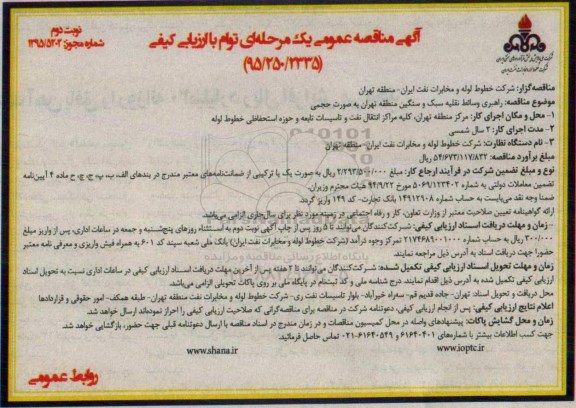 نوبت دوم
شماره مجوز: ۱۳۹۵/۵۲۰۲
آگهی مناقصه عمومی یک مرحله‌ای توام با ارزیابی کیفی
(۹۵/۲۵۰/۲۳۳۵)
مناقصه‌گزار: شرکت خطوط لوله و مخابرات نفت ایران- منطقه تهران
موضوع مناقصه: راهبری وسائط نقلیه سبک و سنگین منطقه تهران به صورت حجمی
۱- محل و مکان اجرای کار: مرکز منطقه تهران، کلیه مراکز انتقال نفت و تاسیسات تابعه و حوزه استحفاظی خطوط لوله
۲- مدت اجرای کار: ۲ سال شمسی
۳- نام دستگاه نظارت: شرکت خطوط لوله و مخابرات نفت ایران- منطقه تهران
مبلغ برآورد مناقصه: ۵۴/۶۷۳/۱۱۷/۸۳۲ ریال
نوع و مبلغ تضمین شرکت در فرآیند ارجاع کار: مبلغ ۲/۲۹۳/۵۰۰/۰۰۰ ریال به صورت یک یا ترکیبی از ضمانت‌نامه‌های معتبر مندرج در بندهای الف، ب، پ، ج، چ، ح ماده ۴ آیین‌نامه
تضمین معاملات دولتی به شماره ۱۲۳۴۰۲/ت۵۰۶۵۹هـ مورخ ۹۴/۹/۲۲ هیات محترم وزیران.
ضمنا وجه نقد می‌بایست به حساب شماره ۱۴۹۱۲۹۰۸ بانک تجارت- کد ۱۴۹ واریز گردد.
ارائه گواهینامه تعیین صلاحیت معتبر از وزارت تعاون، کار و رفاه اجتماعی در زمینه مورد نظر برای سال جاری الزامی می‌باشد.
زمان و مهلت دریافت اسناد ارزیابی کیفی: شرکت‌کنندگان می‌توانند تا ۵ روز پس از چاپ آگهی نوبت دوم به استثناء روزهای پنج‌شنبه و جمعه در ساعات اداری، پس از واریز مبلغ
۳۰۰/۰۰۰ ریال به حساب شماره ۲۱۷۴۶۸۹۰۰۱۰۰۰ تمرکز وجوه درآمد (شرکت خطوط لوله و مخابرات نفت ایران) بانک ملی شعبه سپند کد ۶۰۱ به همراه فیش واریزی و معرفی نامه معتبر
حضورا جهت دریافت اسناد به آدرس ذیل مراجعه نمایند.
زمان و مهلت تحویل اسناد ارزیابی کیفی تکمیل شده: شرکت‌کنندگان می‌توانند تا ۲ هفته پس از آخرین مهلت دریافت اسناد ارزیابی کیفی در ساعات اداری نسبت به تحویل اسناد
ارزیابی کیفی تکمیل شده به آدرس ذیل اقدام نمایند. درج شناسه ملی و کد ثبت‌نام در پایگاه ملی بر روی پاکات تحویلی الزامی می‌باشد.
محل دریافت و تحویل اسناد: تهران- جاده قدیم قم- سه‌راه خیرآباد- بلوار تاسیسات نفت ری- شرکت خطوط لوله و مخابرات نفت منطقه تهران- طبقه همکف- امور حقوقی و قراردادها
اعلام نتایج ارزیابی کیفی: پس از انجام ارزیابی کیفی، دعوتنامه شرکت در مناقصه برای مناقصه‌گرانی که صلاحیت ارزیابی کیفی را احراز نموده‌اند ارسال خواهد شد.
زمان و محل گشایش پاکات: پیشنهادهای واصله در محل کمیسیون مناقصات و در زمان مندرج در اسناد مناقصه با ارسال دعوتنامه قبلی جهت حضور، بازگشایی خواهد شد.
جهت کسب اطلاعات بیشتر با شماره‌های ۶۱۶۴۰۴۰۱ و ۶۱۶۴۰۵۴۹-۰۲۱ تماس حاصل فرمائید.
www.shana.ir www.ioptc.ir
روابط عمومی